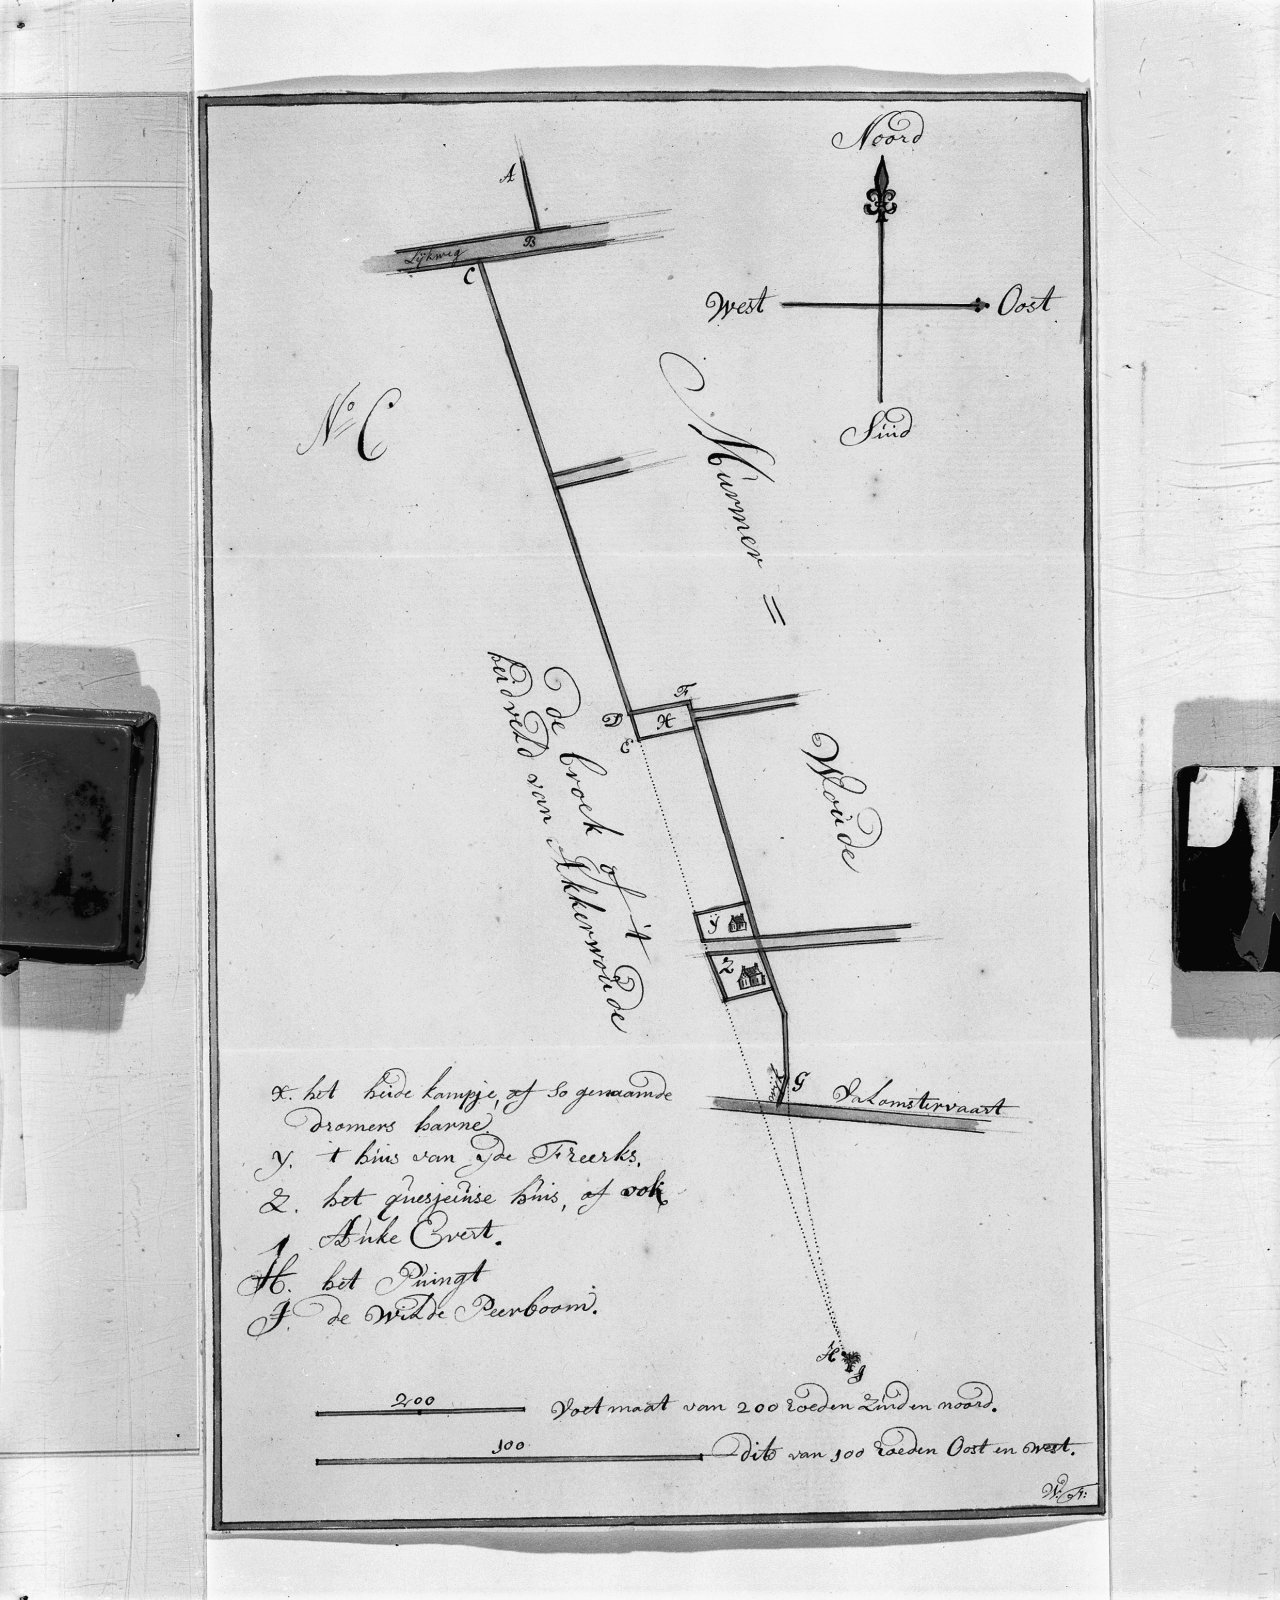 Noord
A
B
Lijkweg
C
West
Oost
Súúd
No C
Múrmer =
Woúde
F
D
X
E
de broek of 't
heidveld van Akkerwoúde
y
Z
G
Valomstervaart
x. het heide kampje, of so genaamde
dromers harne.
y. 't húis van yde Freerks.
Z. het gúesjeúise húis, of ook
Aúke Evert.
H. het Púingt
J. de wilde Peerboom.
H
J
200
Voetmaat van 200 roeden Zúid en noord.
100
dito van 100 roeden Oost en west.